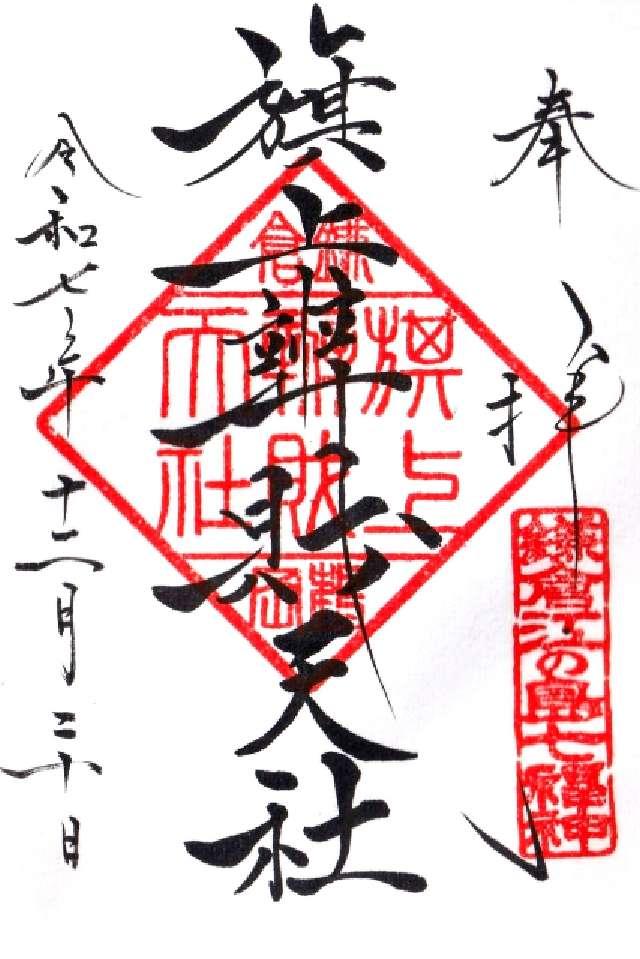 奉拝
鎌倉江の島七福神
旗上弁財天社
鎌倉
旗上
弁財
天社
鶴岡
令和七年十二月二十日